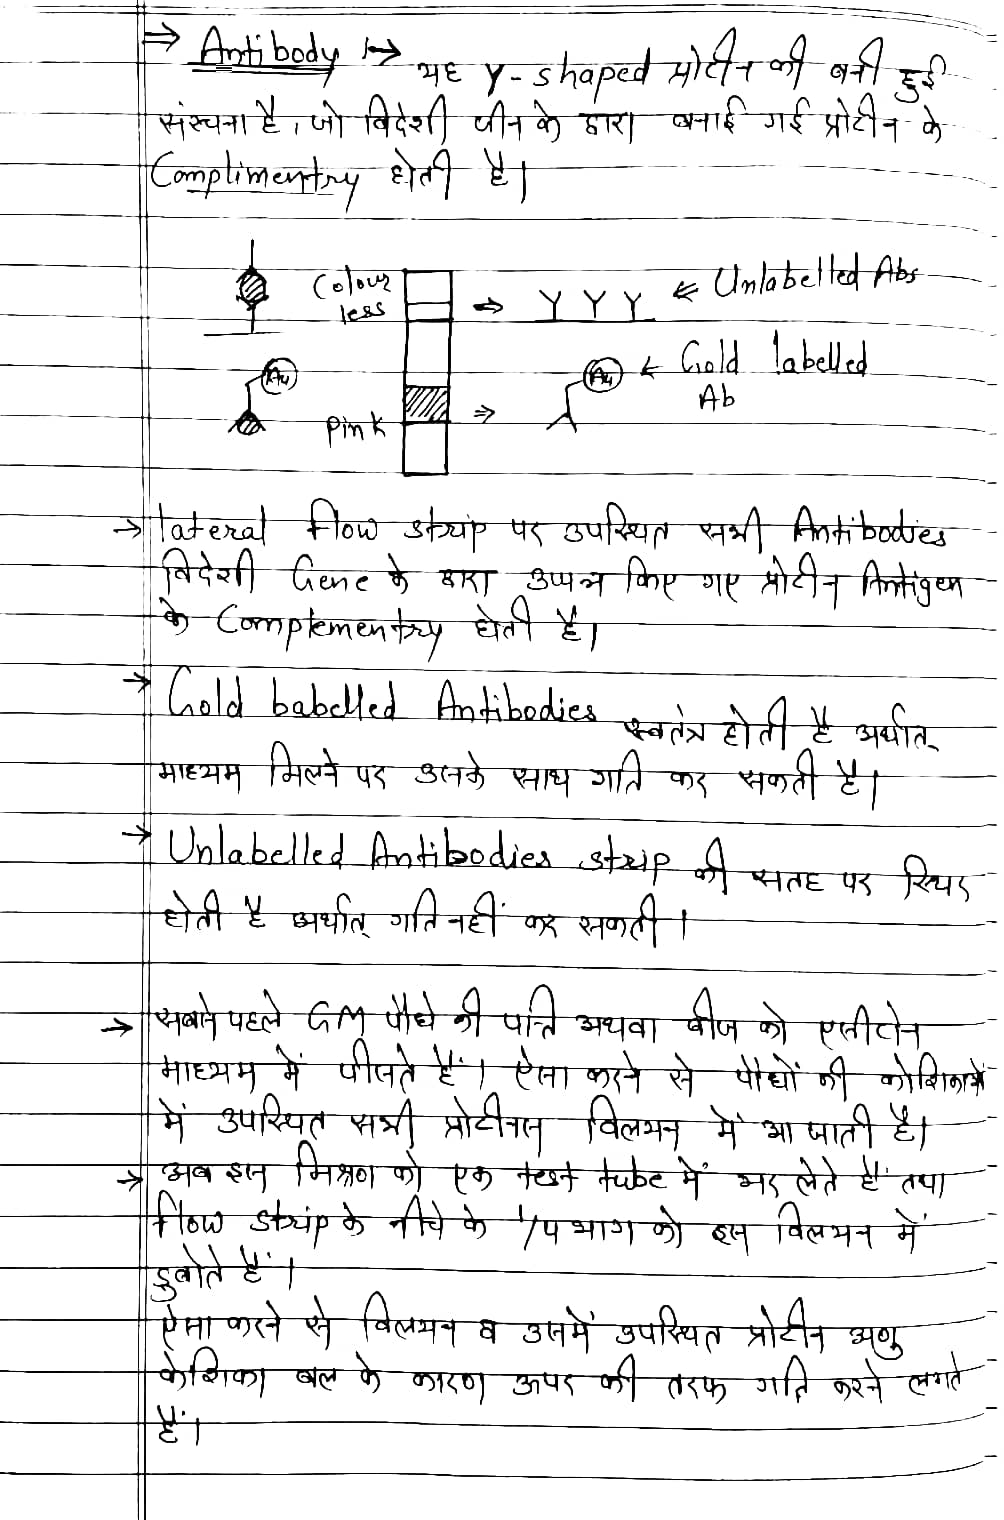 ⇒ Antibody :→ यह Y-shaped प्रोटीन की बनी हुई
संरचना है, जो विदेशी जीन के द्वारा बनाई गई प्रोटीन के
Complimentry होती है।
Colour less ⇒ Y Y Y ← Unlabelled Abs
Au Au ← Gold labelled Ab
Pink ⇒
→ lateral flow strip पर उपस्थित सभी Antibodies
विदेशी Gene के द्वारा उप्पन्न किए गए प्रोटीन Antigen
के Complementry होती है।
→ Gold babelled Antibodies स्वतंत्र होती है अर्थात्
माध्यम मिलने पर उसके साथ गति कर सकती है।
→ Unlabelled Antibodies strip की सतह पर स्थिर
होती है अर्थात् गति नहीं कर सकती।
→ सबसे पहले GM पौधे की पत्ति अथवा बीज को एसीटोन
माध्यम में पीसते हैं। ऐसा करने से पौधों की कोशिकाओं
में उपस्थित सभी प्रोटीनस विलयन में आ जाती है।
→ अब इस मिश्रण को एक test tube में भर लेते है तथा
flow strip के नीचे के 1/4 भाग को इस विलयन में
डुबोते हैं।
ऐसा करने से विलयन व उसमें उपस्थित प्रोटीन अणु
केशिका बल के कारण ऊपर की तरफ गति करने लगते
हैं।